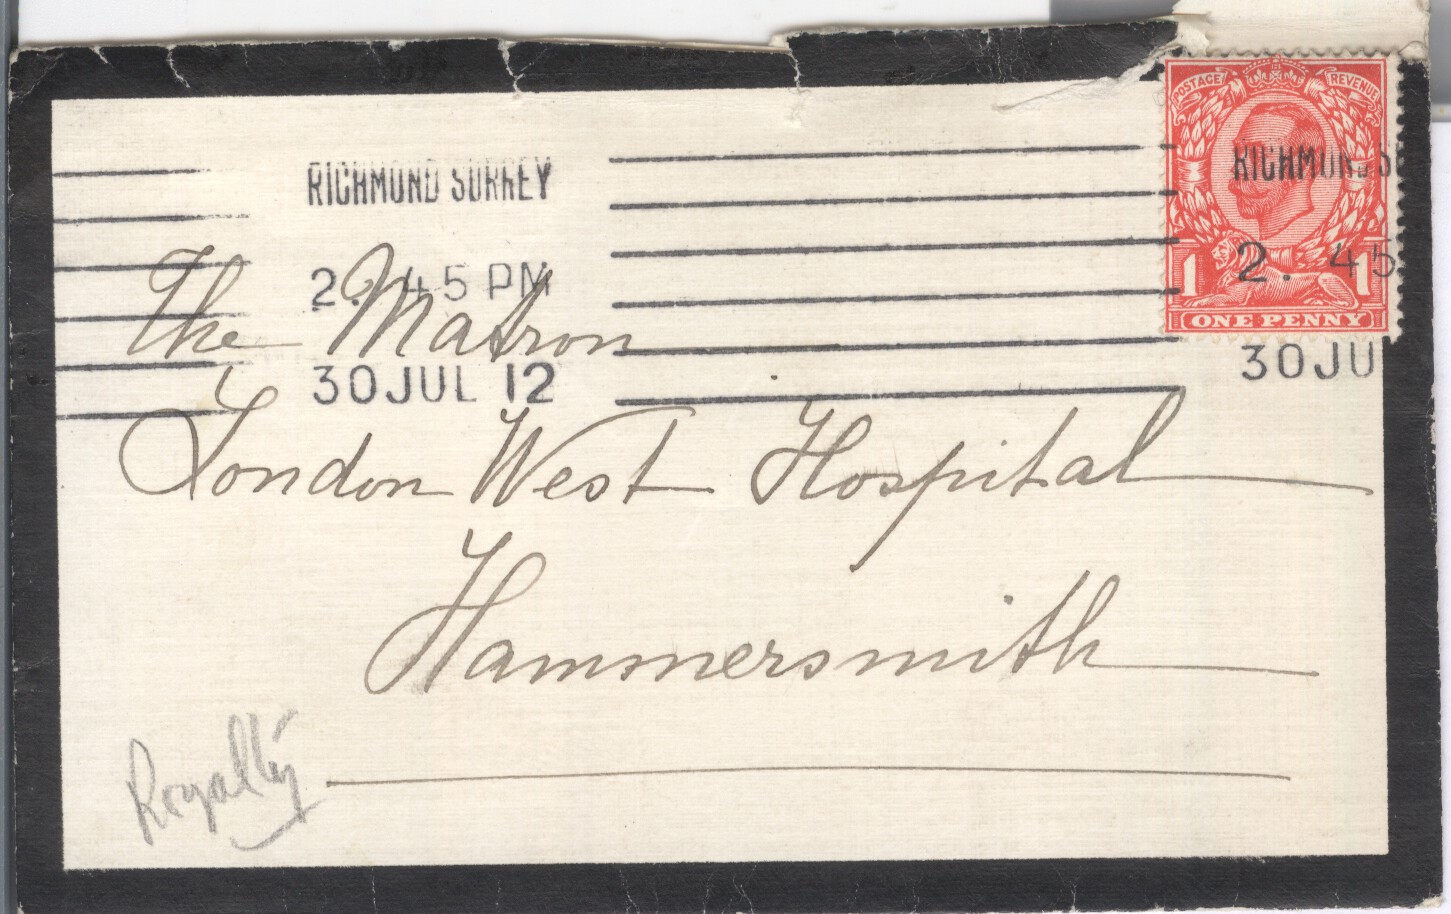 POSTAGE REVENUE
RICHMOND SURREY
RICHMOND S
2. 45 PM
2. 45
1 1
ONE PENNY
30 JUL 12
30 JU
The Matron
London West Hospital
Hammersmith
Royalty